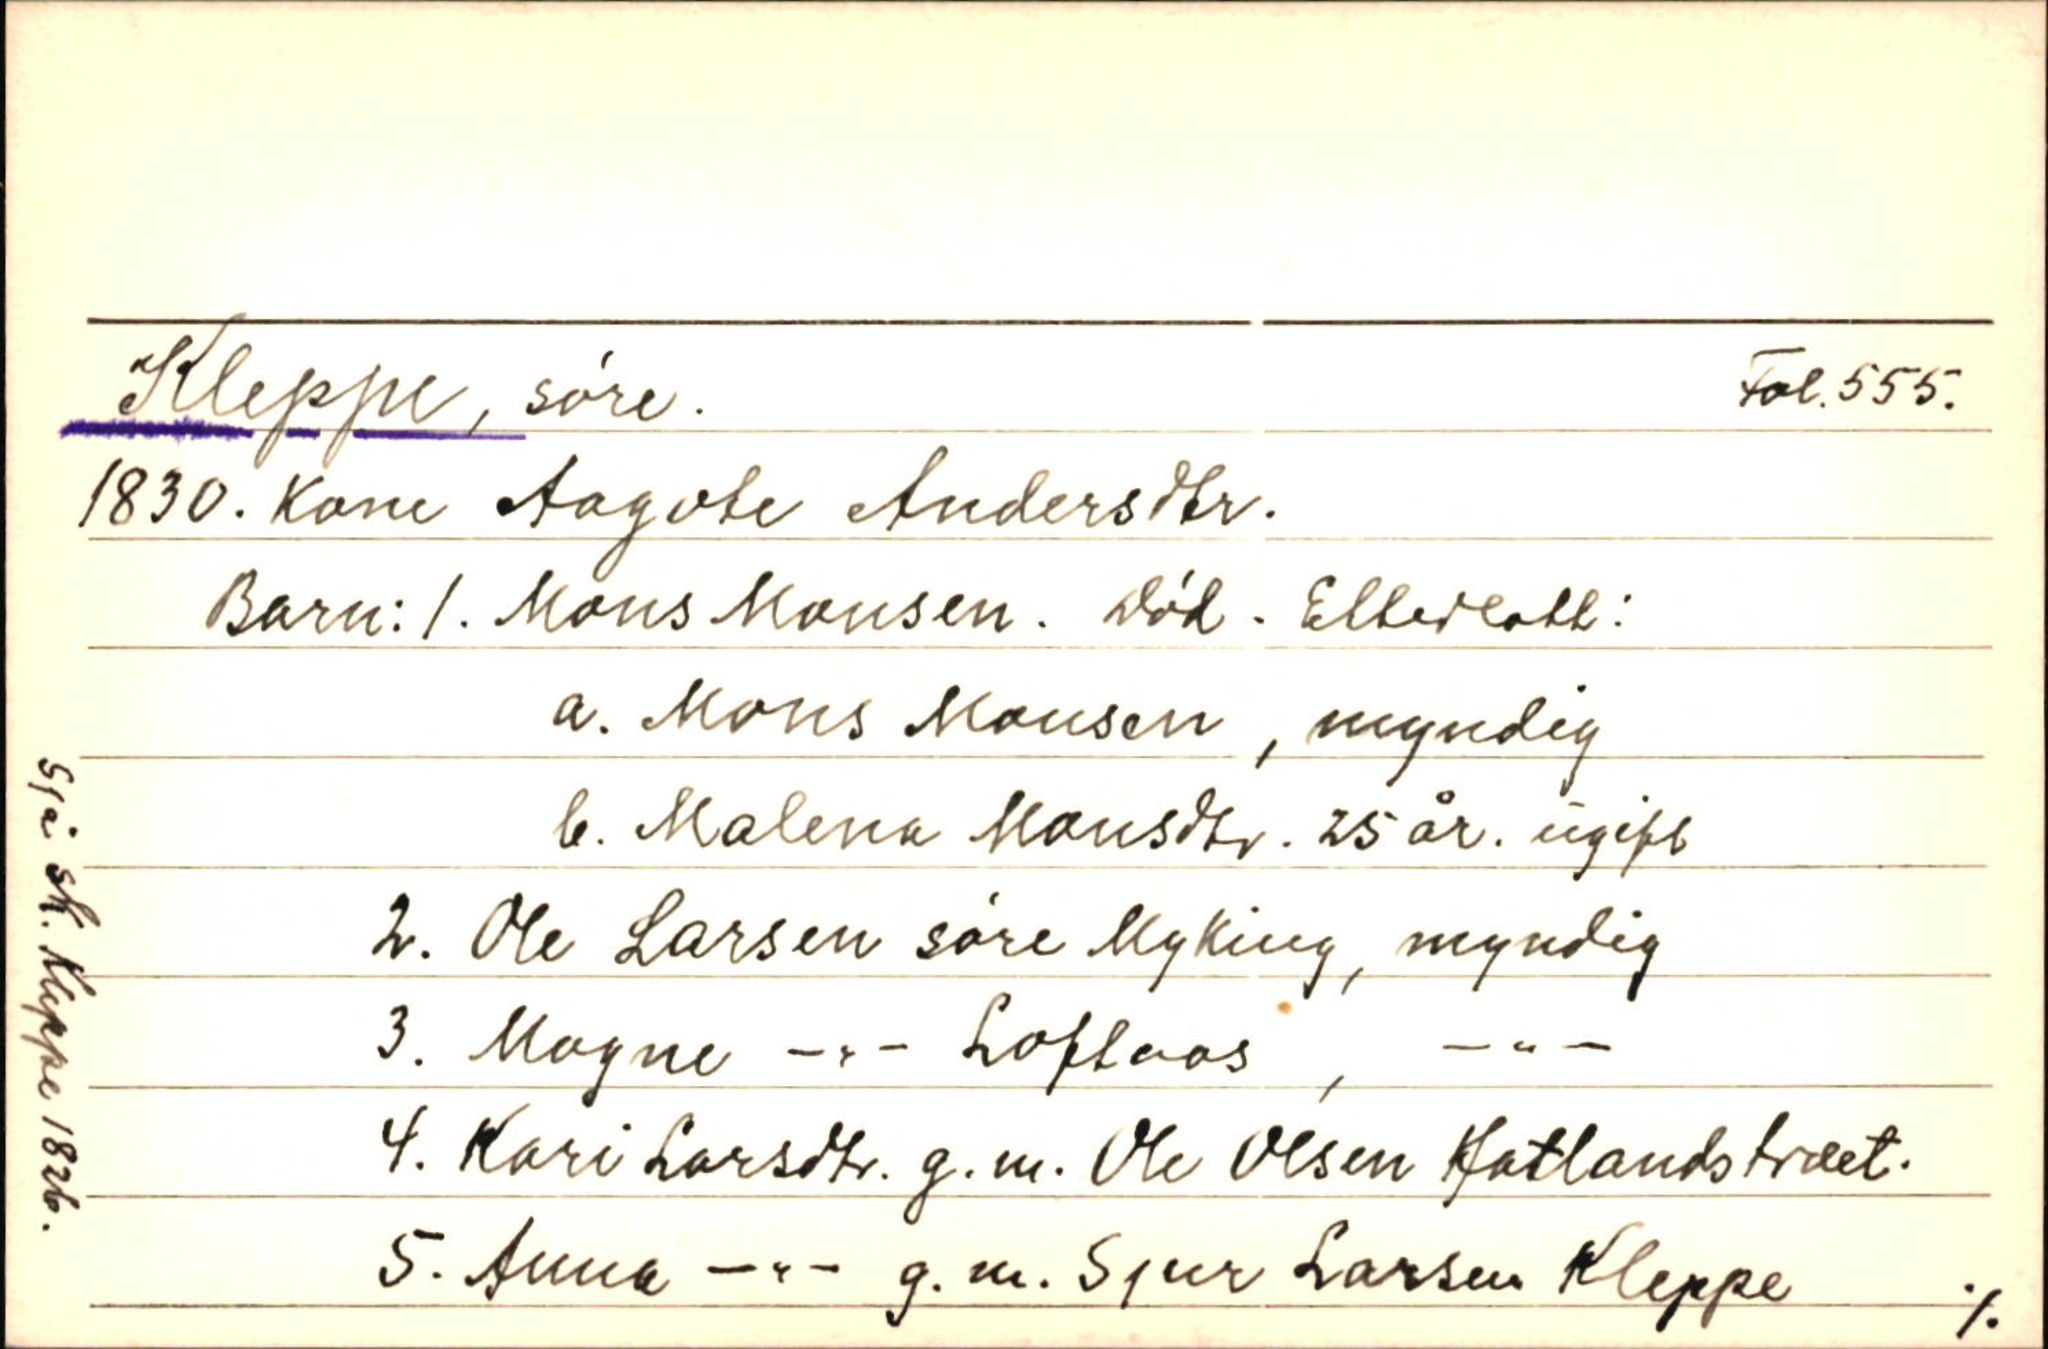 Kleppe, søre. Fol. 555.
1830. Kone Aagote Andersdtr.
Barn: 1. Mons Monsen. Død. Etterlatt:
a. Mons Monsen, myndig
b. Malena Monsdtr. 25 år. ugift
2. Ole Larsen søre Myking, myndig
3. Mogne -"- Loftaas, -"-
4. Kari Larsdtr. g.m. Ole Olsen Hatlandstræet.
5. Anna -"- g.m. Sjur Larsen Kleppe ./.
Sjå sk. Kleppe 1826.